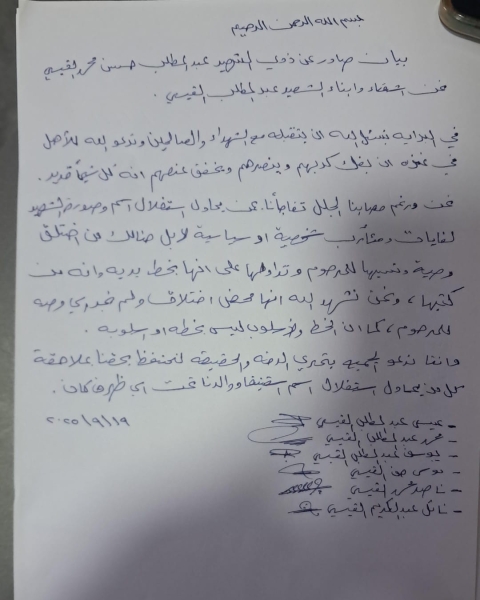 بسم الله الرحمن الرحيم
بيان صادر عن ذوي الشهيد عبد المطلب حسن محمد القيسي
نحن اشقاء وابناء الشهيد عبد المطلب القيسي .
في البداية نسئل الله ان يتقبله مع الشهداء والصالحين وندعو الله للأهل
في غزه ان يفك كربهم وينصرهم ويخفف عنهم انه كل شيئاً قدير .
نحن ورغم مصابنا الجلل تفاجأنا بمن يحاول استغلال اسم وصورة الشهيد
لغايات ومئآرب شخصية او سياسية لا بل هنالك من اختلق
وصية ونسبها للمرحوم وتداولها على انها بخط يديه وانه من
كتبها ، ونحن نشهد الله انها محض اختلاق ولم نجد اي وصية
للمرحوم ، كما ان الخط والاسلوب ليس بخطه او اسلوبه .
واننا ندعو الجميع بتحري الدقه والحقيقه لنحتفظ بحقنا بملاحقة
كل من يحاول استغلال اسم شقيقنا ووالدنا تحت اي ظرف كان .
- عيسى عبد المطلب القيسي ٢٠٢٥/٩/١٩
- محمد عبد المطلب القيسي
- يوسف عبد المطلب القيسي
- موسى حسن القيسي
- ناصر محمد القيسي
- نائل عبد الكريم القيسي